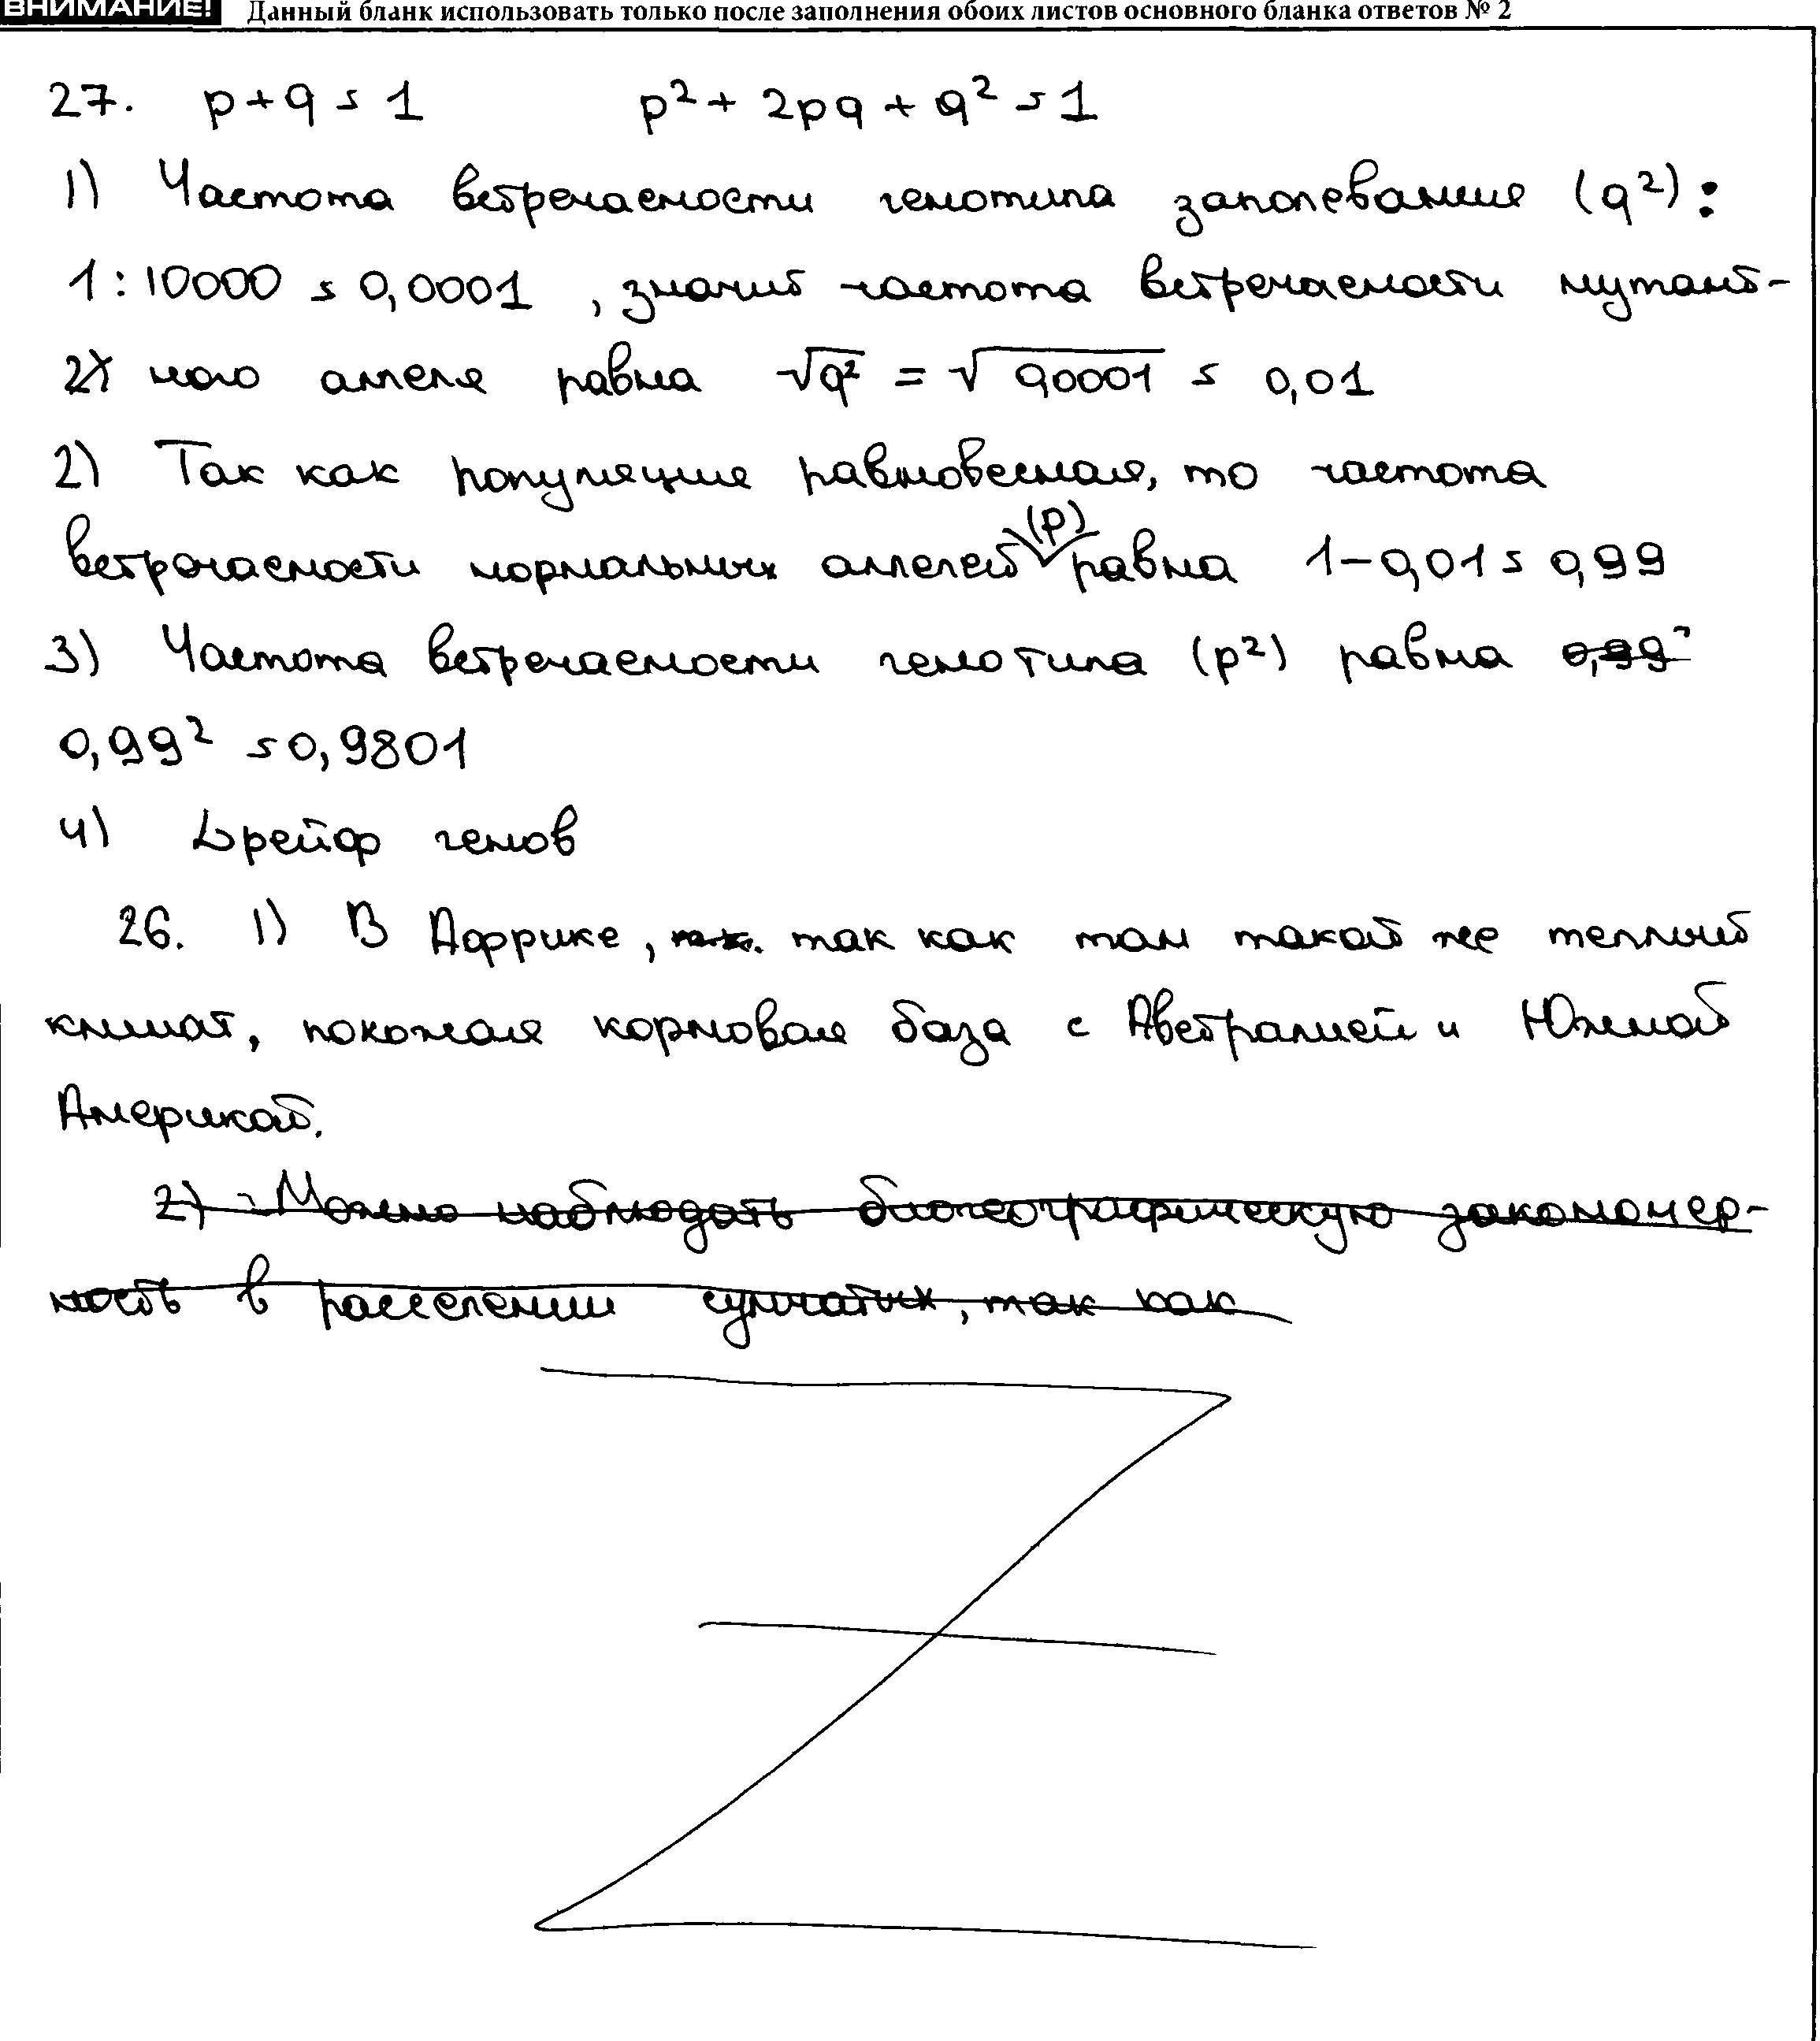 ВНИМАНИЕ! Данный бланк использовать только после заполнения обоих листов основного бланка ответов № 2
27. p+q=1 p²+2pq+q²=1
1) Частота встречаемости генотипа заполевание (q²):
1:10000 = 0,0001, значит частота встречаемости мутант-
2) ного аллеля равна √q² = √0,0001 = 0,01
2) Так как популяция равновесная, то частота
встречаемости нормальных аллелей (p) равна 1-0,01=0,99
3) Частота встречаемости генотипа (p²) равна 0,99²
0,99² =0,9801
4) Дрейф генов
26. 1) В Африке, т.к. так как там такой же теплый
климат, похожая кормовая база с Австралией и Южной
Америкой.
2) Можно наблюдать биогеографическую закономер-
ность в расселении сумчатых, так как